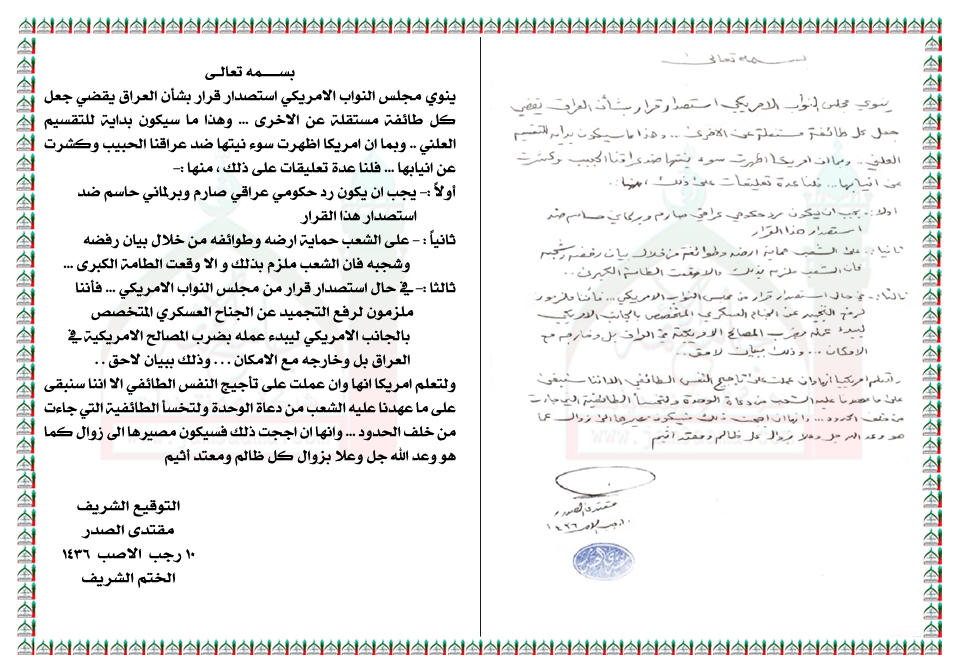 بســـمه تعالـى
ينوي مجلس النواب الامريكي استصدار قرار بشأن العراق يقضي جعل
كل طائفة مستقلة عن الاخرى ... وهذا ما سيكون بداية للتقسيم
العلني .. وبما ان امريكا اظهرت سوء نيتها ضد عراقنا الحبيب وكشرت
عن انيابها ... فلنا عدة تعليقات على ذلك ، منها :-
أولاً :- يجب ان يكون رد حكومي عراقي صارم وبرلماني حاسم ضد
استصدار هذا القرار
ثانياً : - على الشعب حماية ارضه وطوائفه من خلال بيان رفضه
وشجبه فان الشعب ملزم بذلك و الا وقعت الطامة الكبرى ...
ثالثا :- في حال استصدار قرار من مجلس النواب الامريكي ... فأننا
ملزمون لرفع التجميد عن الجناح العسكري المتخصص
بالجانب الامريكي ليبدء عمله بضرب المصالح الامريكية في
العراق بل وخارجه مع الامكان . . . وذلك ببيان لاحق . .
ولتعلم امريكا انها وان عملت على تأجيج النفس الطائفي الا اننا سنبقى
على ما عهدنا عليه الشعب من دعاة الوحدة ولتخسأ الطائفية التي جاءت
من خلف الحدود ... وانها ان اججت ذلك فسيكون مصيرها الى زوال كما
هو وعد الله جل وعلا بزوال كل ظالم ومعتد أثيم
التوقيع الشريف
مقتدى الصدر
١٠ رجب الاصب ١٤٣٦
الختم الشريف
بسمه تعالى
ينوي مجلس النواب الامريكي استصدار قرار بشأن العراق يقضي
جعل كل طائفة مستقلة عن الاخرى ... وهذا ما سيكون بداية للتقسيم
العلني .. وبما ان امريكا اظهرت سوء نيتها ضد عراقنا الحبيب وكشرت
عن انيابها ... فلنا عدة تعليقات على ذلك ، منها :
اولا :- يجب ان يكون رد حكومي عراقي صارم وبرلماني حاسم ضد
استصدار هذا القرار
ثانيا :- على الشعب حماية ارضه وطوائفه من خلال بيان رفضه وشجبه
فان الشعب ملزم بذلك والا وقعت الطامة الكبرى ..
ثالثا :- في حال استصدار قرار من مجلس النواب الامريكي ... فأننا ملزمون
لرفع التجميد عن الجناح العسكري المتخصص بالجانب الامريكي
ليبدء عمله بضرب المصالح الامريكية في العراق بل وخارجه مع
الامكان ... وذلك ببيان لاحق ..
ولتعلم امريكا انها وان عملت على تأجيج النفس الطائفي الا اننا سنبقى
على ما عهدنا عليه الشعب من دعاة الوحدة ولتخسأ الطائفية التي جاءت
من خلف الحدود ... وانها ان اججت ذلك فسيكون مصيرها الى زوال كما
هو وعد الله جل وعلا بزوال كل ظالم ومعتد أثيم
مقتدى الصدر
١٠ رجب الاصب ١٤٣٦